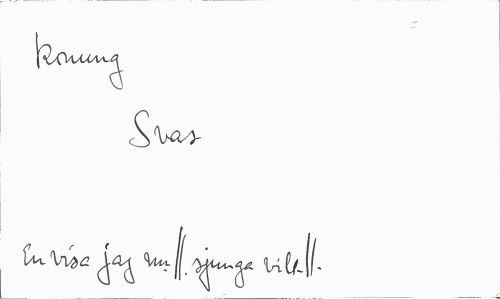 Konung
Svas
En visa jag nu ||. sjunga vill ||.